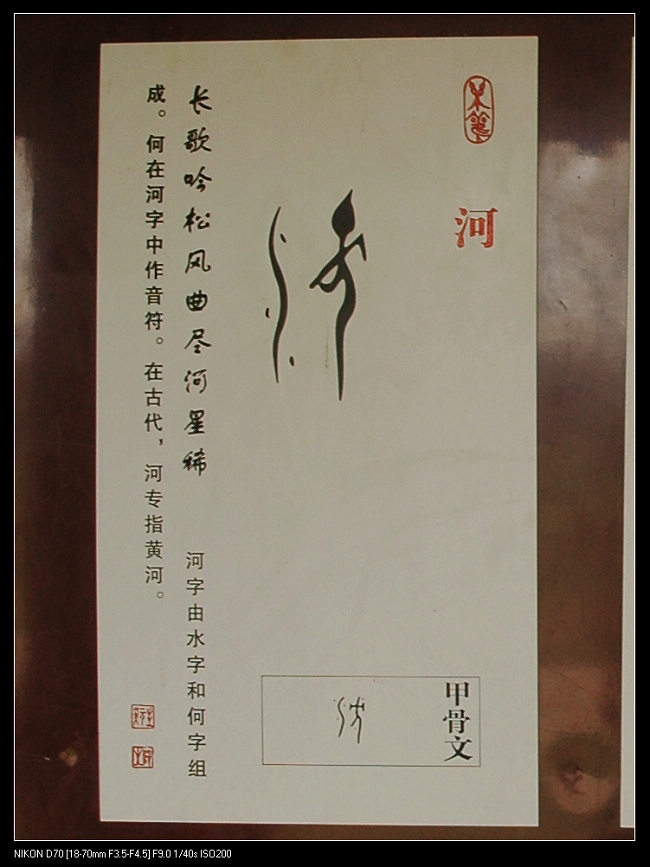 河
甲骨文
长歌吟松风曲尽河星稀
河字由水字和何字组
成。何在河字中作音符。在古代，河专指黄河。
NIKON D70 [18-70mm F3.5-F4.5] F9.0 1/40s ISO200